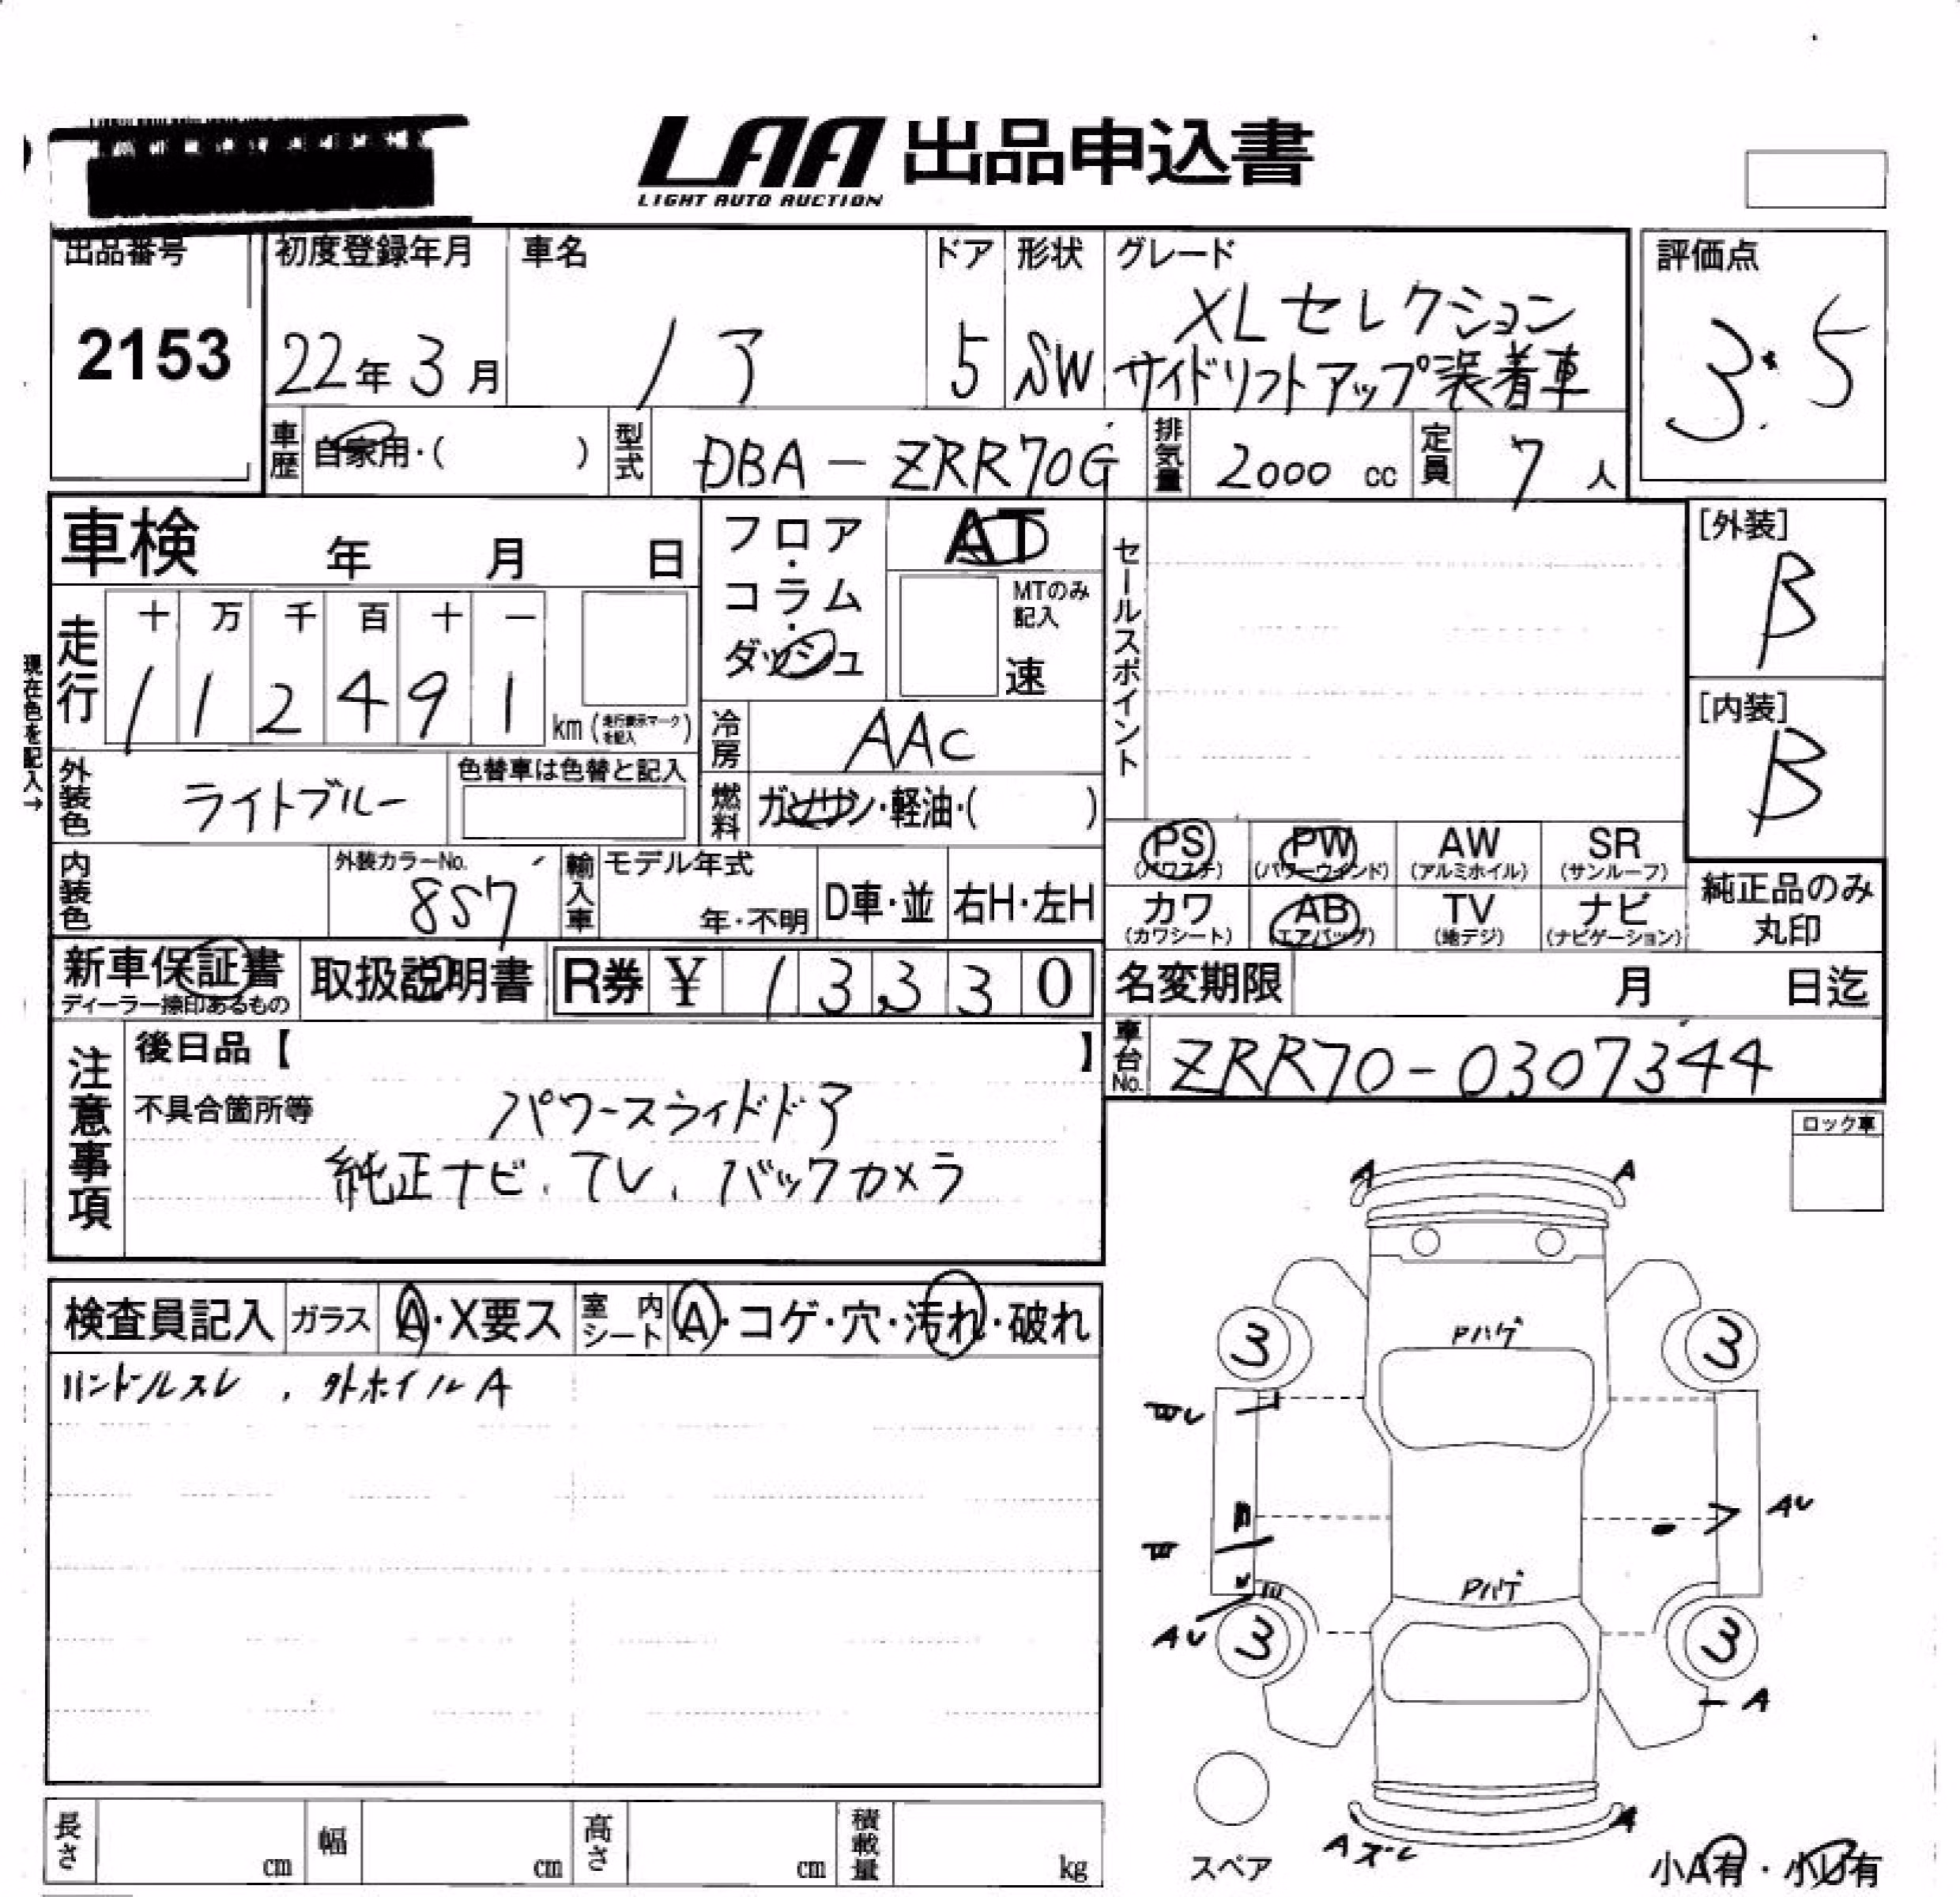 LAA 出品申込書
LIGHT AUTO AUCTION
出品番号 初度登録年月 車名 ドア 形状 グレード 評価点
2153 22年 3月 ノア 5 SW XLセレクション 3.5
サイドリフトアップ装着車
車歴 自家用・( ) 型式 DBA-ZRR70G 排気量 2000 cc 定員 7 人
車検 年 月 日 フロア・コラム・ダッシュ AT セールスポイント [外装]
MTのみ記入 速 B
走行 十 万 千 百 十 一
1 1 2 4 9 1 km (走行表示マークを記入)
現在色を記入→
[内装]
B
冷房 AAC
外装色 ライトブルー 色替車は色替と記入 燃料 ガソリン・軽油・( )
PS (パワステ) PW (パワーウインド) AW (アルミホイル) SR (サンルーフ)
内装色 外装カラーNo. 857 輸入車 モデル年式 年・不明 D車・並 右H・左H
カワ (カワシート) AB (エアバッグ) TV (地デジ) ナビ (ナビゲーション)
純正品のみ
丸印
新車保証書 取扱説明書 R券 ¥ 13330 名変期限 月 日迄
ディーラー捺印あるもの
車台No. ZRR70-0307344
注意事項 後日品【 】
不具合箇所等 パワースライドドア
純正ナビ、TV、バックカメラ
ロック車
A A
検査員記入 ガラス A・X要ス 室内シート A・コゲ・穴・汚れ・破れ
ハンドルスレ、外ホイルA
Pハゲ
3 3
AU
Pハゲ
AU 3 3
A
A スレ A
長さ cm 幅 cm 高さ cm 積載量 kg
スペア 小A有・小U有